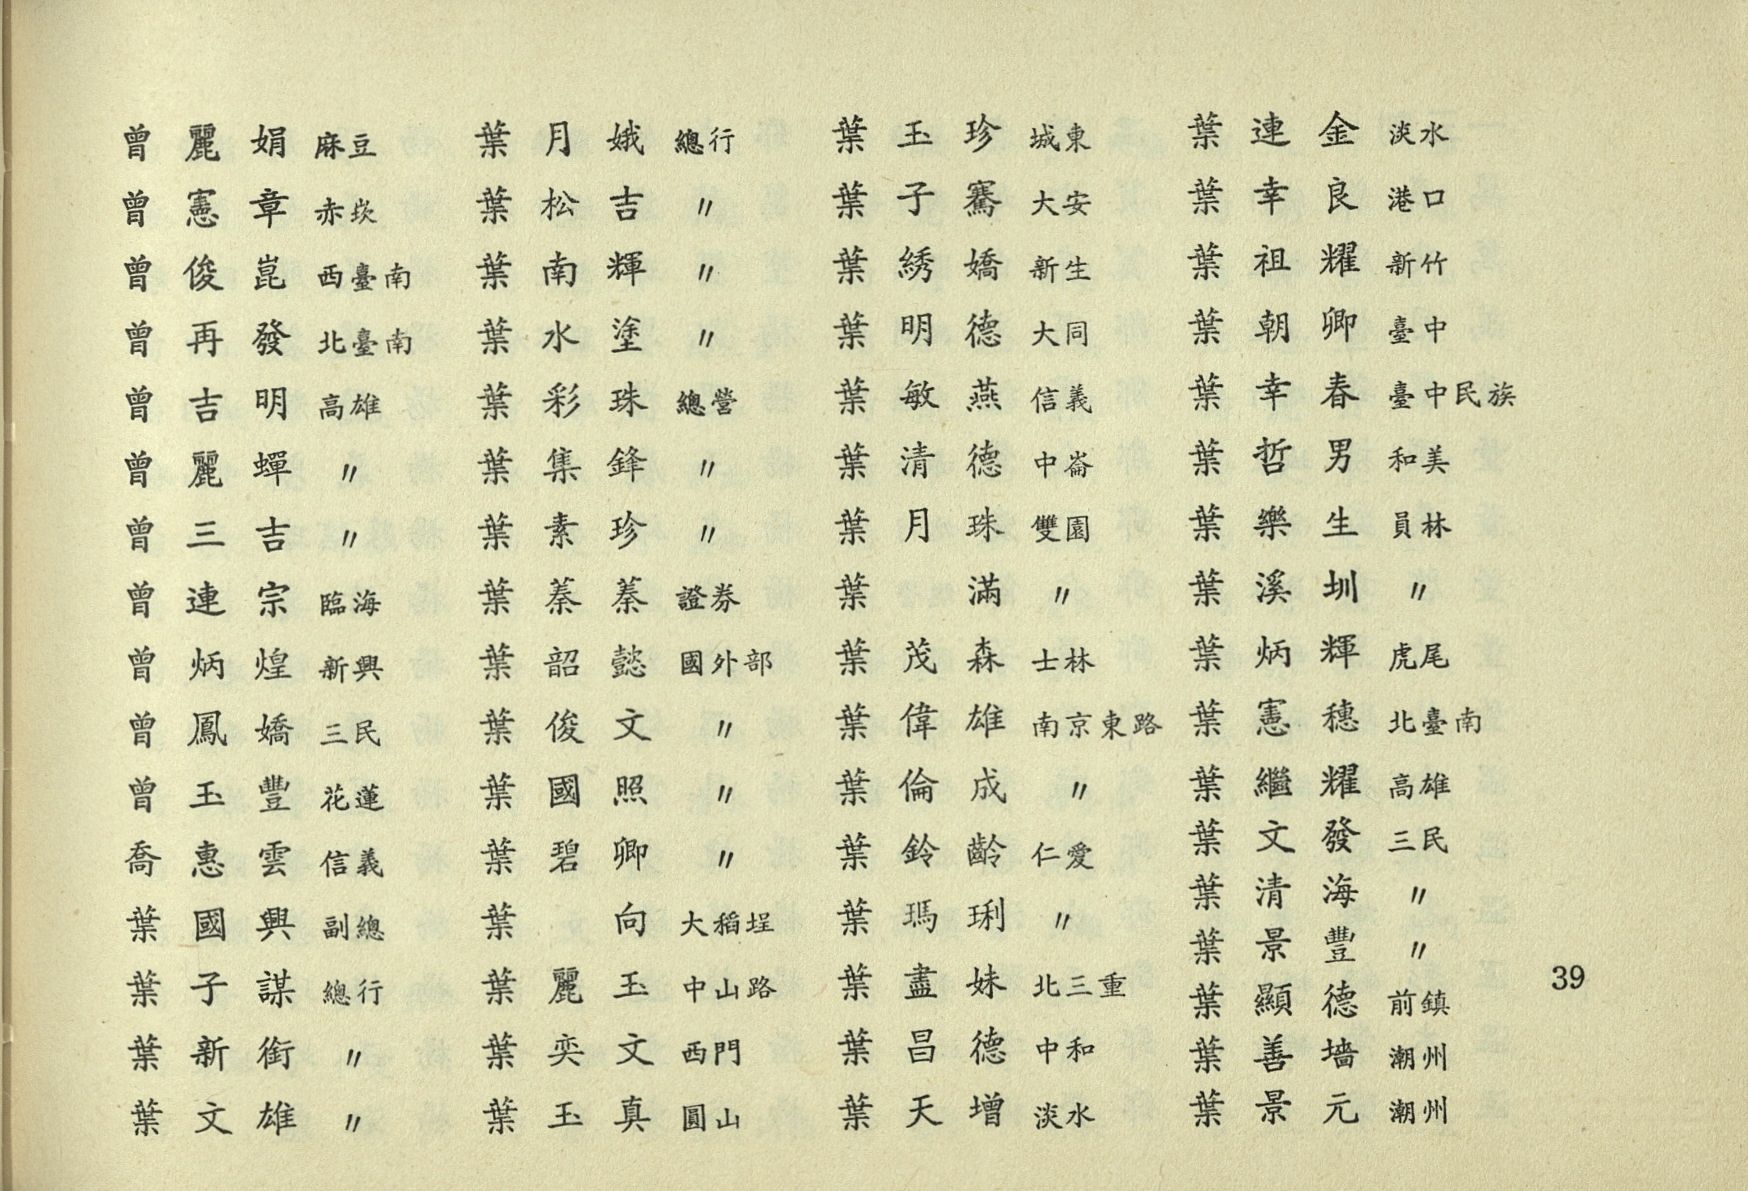 曾麗娟 麻豆
曾憲章 赤崁
曾俊崑 西臺南
曾再發 北臺南
曾吉明 高雄
曾麗蟬 〃
曾三吉 〃
曾連宗 臨海
曾炳煌 新興
曾鳳嬌 三民
曾玉豐 花蓮
喬惠雲 信義
葉國興 副總
葉子謀 總行
葉新銜 〃
葉文雄 〃
葉月娥 總行
葉松吉 〃
葉南輝 〃
葉水塗 〃
葉彩珠 總營
葉集鋒 〃
葉素珍 〃
葉蓁蓁 證券
葉韶懿 國外部
葉俊文 〃
葉國照 〃
葉碧卿 〃
葉 向 大稻埕
葉麗玉 中山路
葉奕文 西門
葉玉真 圓山
葉玉珍 城東
葉子騫 大安
葉綉嬌 新生
葉明德 大同
葉敏燕 信義
葉清德 中崙
葉月珠 雙園
葉 滿 〃
葉茂森 士林
葉偉雄 南京東路
葉倫成 〃
葉鈴齡 仁愛
葉瑪琍 〃
葉盡妹 北三重
葉昌德 中和
葉天增 淡水
葉連金 淡水
葉幸良 港口
葉祖耀 新竹
葉朝卿 臺中
葉幸春 臺中民族
葉哲男 和美
葉樂生 員林
葉溪圳 〃
葉炳輝 虎尾
葉憲穗 北臺南
葉繼耀 高雄
葉文發 三民
葉清海 〃
葉景豐 〃
葉顯德 前鎮
葉善墻 潮州
葉景元 潮州
39